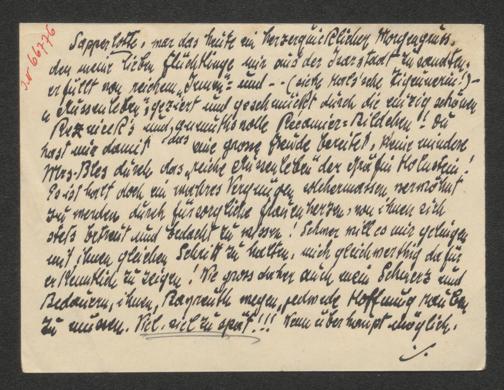 J.N 66776
Sapperlotte, war das heute ein herzerquicklicher Morgengruss,
den meine lieben Flüchtlinge mir aus der Isarstadt zuwandten,
erfüllt von reichem „Innen"- und - (siehe Hals'sche Zigeunerin!) -
„Aussenleben" geziert und geschmückt durch die einzig schönen
und gemüthsvolle Récamier-Bildchen!! Du
hast mir damit eine grosse Freude bereitet, kleine muntere
Mrs. durch das „reiche Aussenleben" der Gräfin Holnstein!
Es ist halt doch ein wahres Vergnügen, allermassen verwöhnt
zu werden durch fürsorgliche Frauenherzen, von ihnen sich
stets betreut und bedacht zu wissen! Schwer will es mir gelingen
mit ihnen gleichen Schritt zu halten, mich gleichwerthig dafür
erkenntlich zu zeigen! Wie gross daher auch mein Schmerz und
Bedauern, ihnen, Bayreuth wegen, jedwede Hoffnung rauben
zu müssen. Viel, viel zu spät!!! Wenn überhaupt möglich.